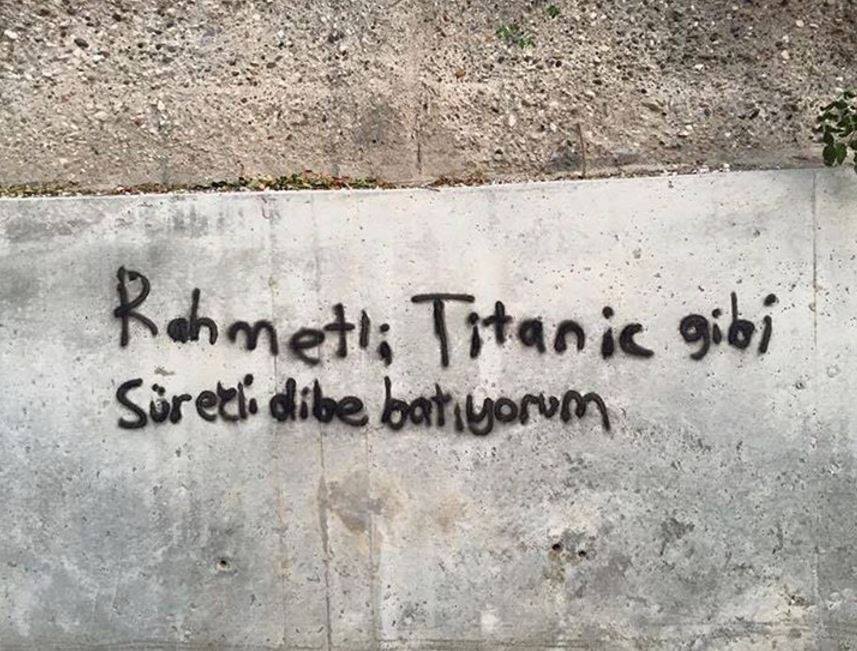 Rahmetli; Titanic gibi
Süretli dibe batıyorum